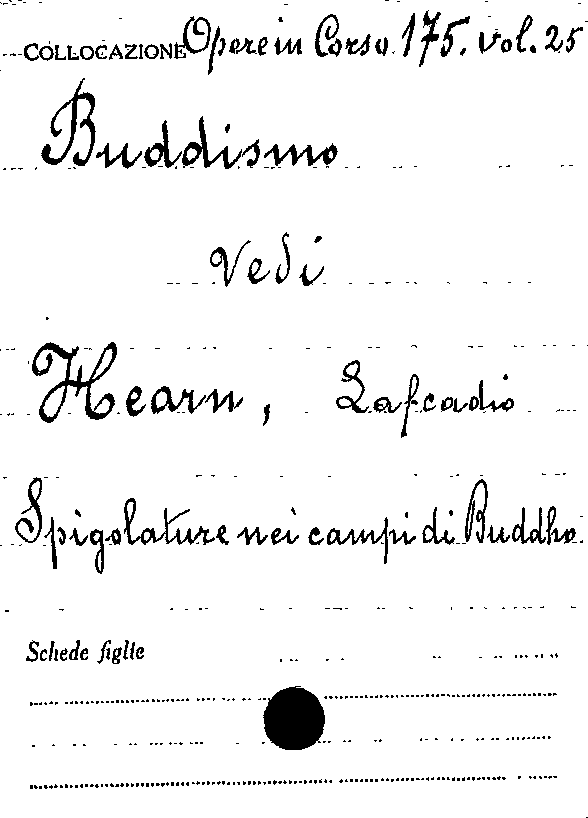 COLLOCAZIONE Opere in Corso 175. vol. 25
Buddismo
Vedi
Hearn, Lafcadio
Spigolature nei campi di Buddho
Schede figlie